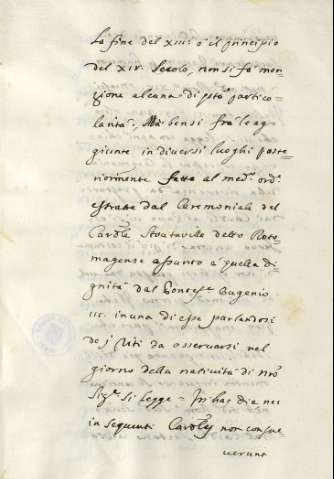 La fine del XIII: o il principio
del XIV. Secolo, non si fà men=
zione alcuna di pta partico=
larità, Mà bensi frà le ag=
giunte in diversi luoghi poste=
riormente fatta al med.º ord.e
estratte dal Ceremoniale del
Card.le Stoutavilla detto Roto=
magense assunto a quella di=
gnità dal Pontefe Eugenio
III. in una di esse parlandosi
de j Riti da osservarsi nel
giorno della natività di Nro
Sig.re Si Legge = In has die nec
in sequenti Card.les non consue
verunt